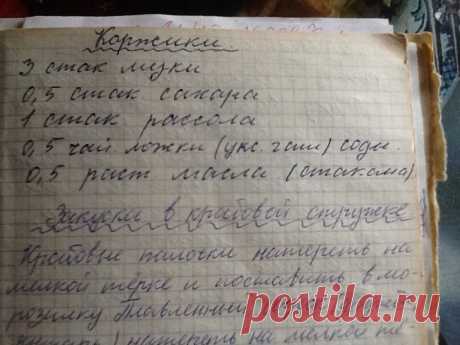 Коржики
3 стак муки
0,5 стак сахара
1 стак рассола
0,5 чай. ложки (укс. гаш) соды.
0,5 раст масла (стакана)
Закуски в крабовой стружке
Крабовые палочки натереть на
мелкой тёрке и поставить в мо-
розилку Плавленный
) натереть на мелкой тё-
postila.ru